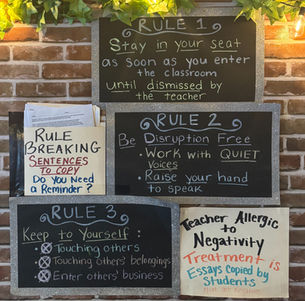 RULE 1
Stay in your seat
as soon as you enter
the classroom
until dismissed by
the teacher
RULE 2
Be Disruption Free
• Work with QUIET
Voices
• Raise your hand
to speak
RULE
BREAKING
SENTENCES
TO COPY
Do You Need
a Reminder?
RULE 3
Keep to Yourself :
Touching others
Touching others' belongings
Enter others' business
Teacher Allergic
to
Negativity
Treatment is
Essays Copied by
Students